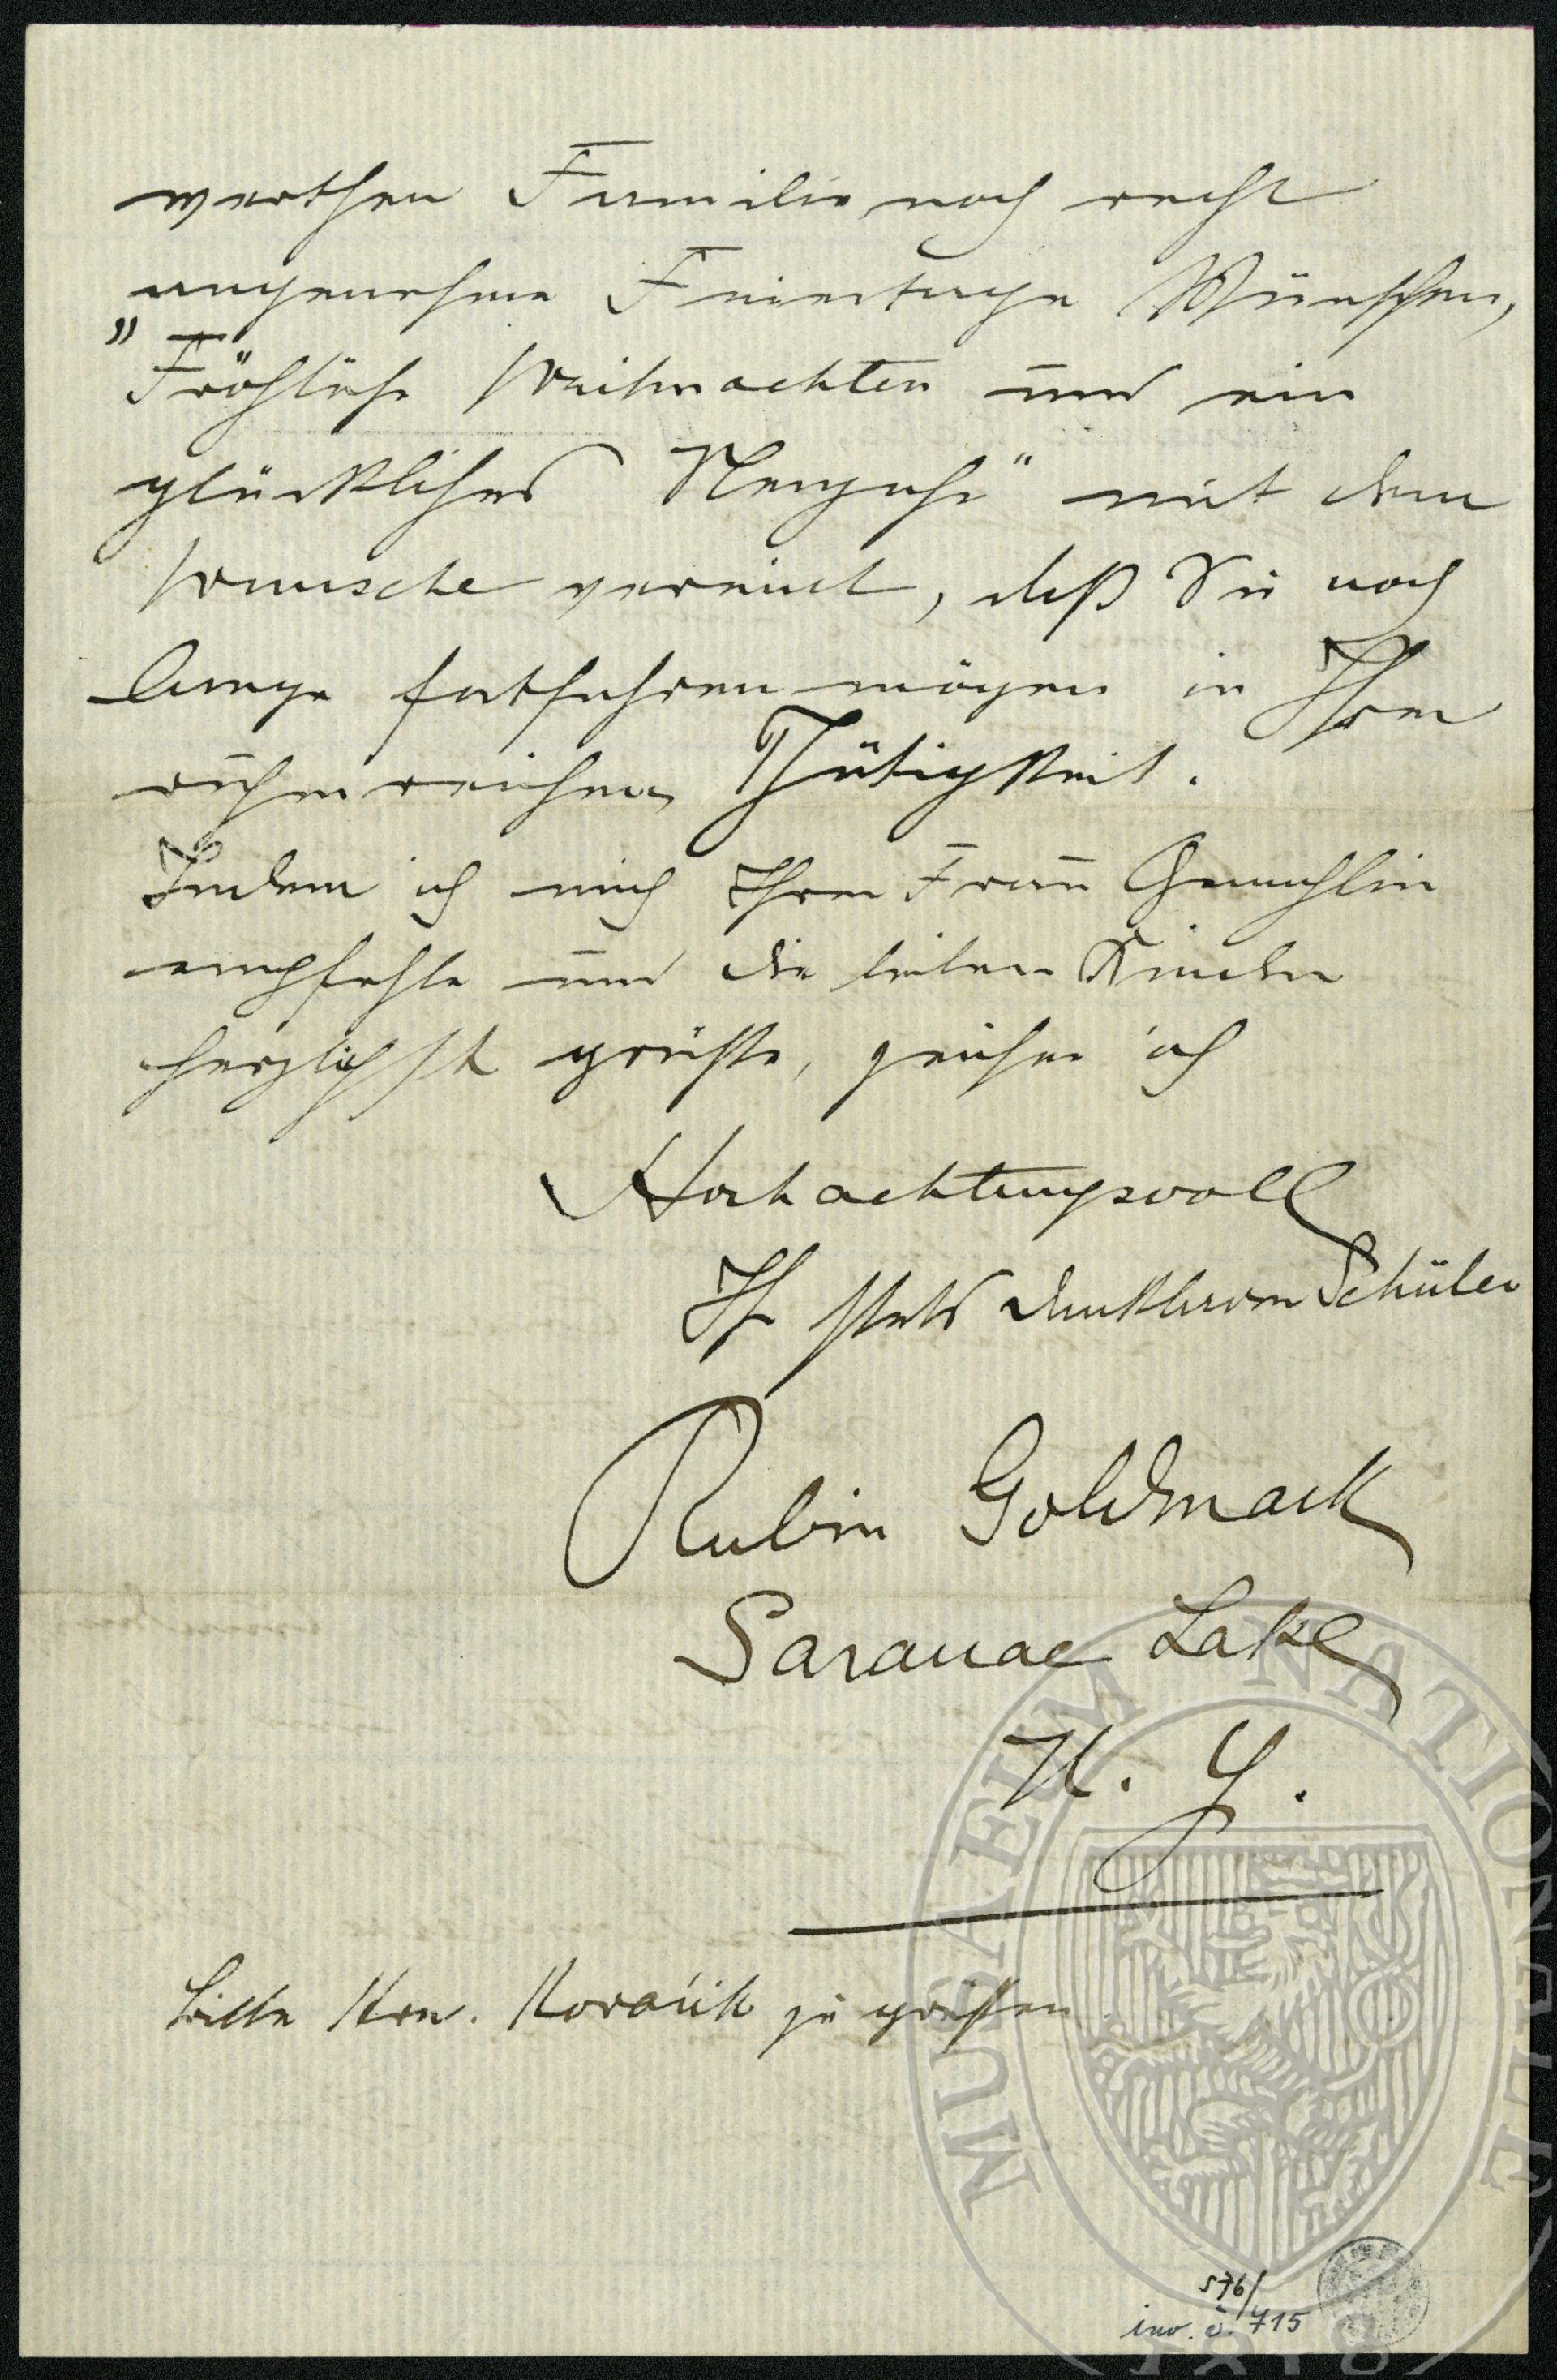 werthen Familie noch recht
angenehme Feiertage Wünschen,
"Fröhliche Weihnachten und ein
glückliches Neujahr" mit dem
Wunsche vereint, daß Sie noch
lange fortfahren mögen in Ihrer
ruhmreichen Thätigkeit.
Indem ich mich Ihrer Frau Gemahlin
empfehle und die lieben Kinder
herzlichst grüsse, zeichne ich
Hochachtungsvoll
Ihr stets dankbarer Schüler
Rubin Goldmark
Saranac Lake
N. Y.
Bitte Hrn. Kovařík zu grüssen.
MUSAEUM NATIONALE
576/
inv. č. 715
1818